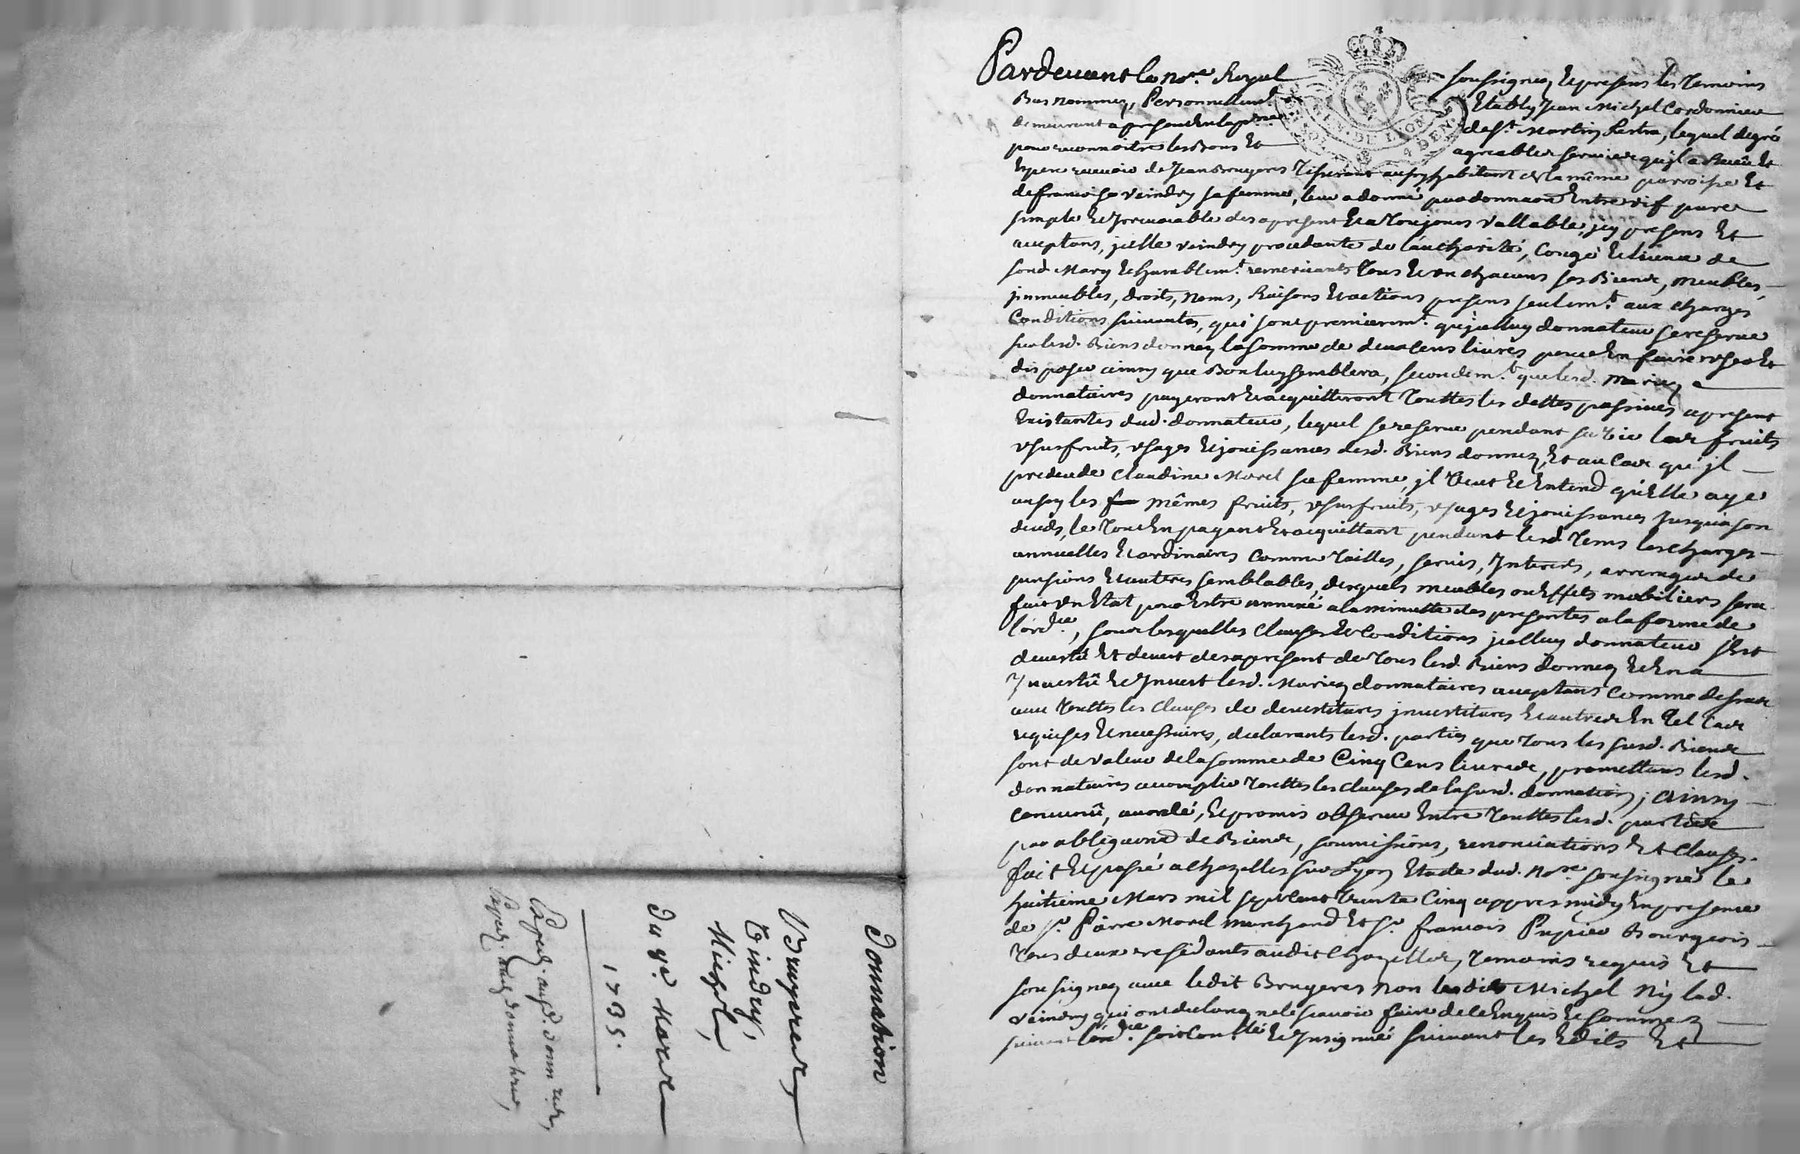 Pardevant le No.re Royal soussigné et presens les temoins
Bas nommez, Personnellem.t Etably Jean Michel Cordonnier
demeurant a present de St. Martin Lestra, lequel de gré
pour reconnoitre les bons et agreables services qu'il a Reçu et
Espere recevoir de Jean Bruyeres Tisserant aussy habitant de la même parroisse Et
de françoise veindry sa femme, leur a donné par donnaon Entre vif pure
simple et Irrevocable des apresent et a toujours vallable, jcy presens Et
aceptans, jcelle veindry procedante de l'authorité, Congé et licence de
sond. Mary et humblem.t remerciants tous et un chacuns ses Biens, meubles,
jmmeubles, droits, noms, Raisons et actions presens seulem.t aux charges
Conditions suivantes, qui sont premierem.t qu'jcelluy donnateur se reserve
sur lesd. Biens donnez la somme de deux cens livres pour En faire et
disposer ainsy que Bon luy semblera, secondem.t que lesd. mariez
donnataires payeront et acquitteront touttes les dettes passives apresent
Existantes dud. donnateur, lequel se reserve pendant sa vie les fruits
usufruits, usages et jouissances desd. Biens donnez, Et au Cas qu'jl
predecede Claudine Morel sa femme, jl veut et Entend qu'Elle aye
aussy les mêmes fruits, usufruits, usages et jouissances jusqu'a son
decés, le tout En payant et acquittant pendant lesd. tems les charges
annuelles et ordinaires comme tailles, servis, Interets, arrerages de
pensions et autres semblables, desquels meubles ou Effets mobiliers sera
fait un Etat pour Estre annexé a la minutte des presentes a la forme de
l'ord.ce, sous lesquelles Clauses et Conditions jcelluy donnateur s'est
devestu Et devest des apresent de tous lesd. Biens donnez et En a
Investu et Investit lesd. Mariez donnataires aceptans comme dessus
avec touttes les Clauses de devestitures jnvestitures et autres En tel cas
requises et necessaires, declarants lesd. parties que tous les susd. Biens
sont de valeur de la somme de Cinq Cens livres, promettans lesd.
donnataires accomplir touttes les clauses de la susd. donnation; ainsy
convenu, accordé, et promis observer Entre touttes lesd. parties
par obligaons de Biens, soumissions, renonciations Et Clauses.
fait et passé a Chazelles sur Lyon Etude dud. No.re soussigné le
huitieme Mars mil sept cent trente Cinq appres midy En presence
de Sr. Pierre Morel marchand Et Sr. francois Pupier Bourgeois
tous deux residants audit Chazelles, temoins requis Et
soussignez avec ledit Bruyeres non ledit Michel Ny lad.
veindry qui ont declaré ne le scavoir faire de ce Enquis et sommez
suivant l'ord.ce soit Con.llé et Insignué suivant les Edits Et
Donnation
Bruyeres,
Vindry,
Michel,
Du 8e. Mars
1735.